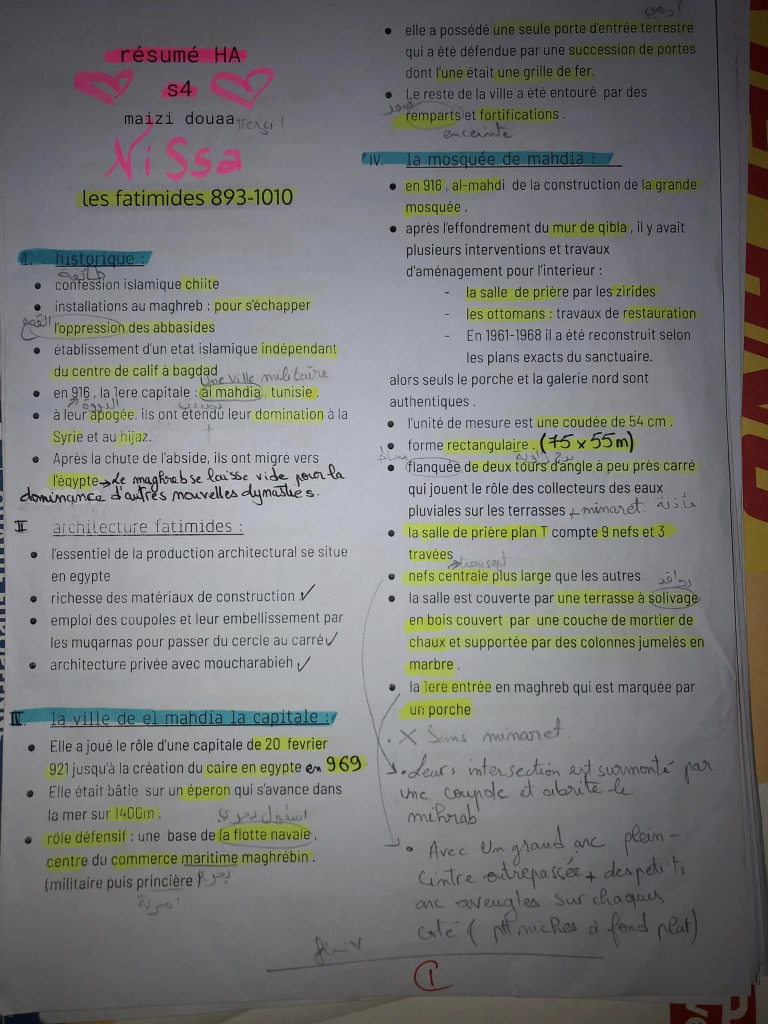 résumé HA
s4
maizi douaa
Nissa
les fatimides 893-1010
I. historique :
طائفة
confession islamique chiite
installations au maghreb : pour s'échapper
القمع
l'oppression des abbasides
établissement d'un etat islamique indépendant
du centre de calif à bagdad
Une ville militaire
en 916, la 1ere capitale : al mahdia, tunisie .
à leur apogée. ils ont étendu leur domination à la
Syrie et au hijaz.
Après la chute de l'abside, ils ont migré vers
l'égypte → Le maghreb se laisse vide pour la
dominance d'autres nouvelles dynasties.
II architecture fatimides :
l'essentiel de la production architectural se situe
en egypte
richesse des matériaux de construction ✓
emploi des coupoles et leur embellissement par
les muqarnas pour passer du cercle au carré ✓
architecture privée avec moucharabieh ✓
la ville de el mahdia la capitale :
Elle a joué le rôle d'une capitale de 20 fevrier
921 jusqu'à la création du caire en egypte en 969
Elle était bâtie sur un éperon qui s'avance dans
la mer sur 1400m .
اسطول بحري
rôle défensif : une base de la flotte navale,
centre du commerce maritime maghrébin .
(militaire puis princière )
بحرية
elle a possédé une seule porte d'entrée terrestre
qui a été défendue par une succession de portes
dont l'une était une grille de fer.
Le reste de la ville a été entouré par des
remparts et fortifications .
enceinte
IV. la mosquée de mahdia :
en 916, al-mahdi de la construction de la grande
mosquée .
après l'effondrement du mur de qibla , il y avait
plusieurs interventions et travaux
d'aménagement pour l'interieur :
- la salle de prière par les zirides
- les ottomans : travaux de restauration
- En 1961-1968 il a été reconstruit selon
les plans exacts du sanctuaire.
alors seuls le porche et la galerie nord sont
authentiques .
l'unité de mesure est une coudée de 54 cm .
forme rectangulaire . (75 x 55m)
flanquée de deux tours d'angle à peu près carré
qui jouent le rôle des collecteurs des eaux
pluviales sur les terrasses + minaret. مأذنة
la salle de prière plan T compte 9 nefs et 3
travées
→ transept
nefs centrale plus large que les autres
روافد
la salle est couverte par une terrasse à solivage
en bois couvert par une couche de mortier de
chaux et supportée par des colonnes jumelés en
marbre .
la 1ere entrée en maghreb qui est marquée par
un porche
. X Sans minaret.
. Leurs intersection est surmonté par
une coupole et abrite le
mihrab
. Avec Un grand arc plein-
cintre outrepassée + des petits
arc aveugles sur chaques
coté ( ptt niches à fond plat)
①